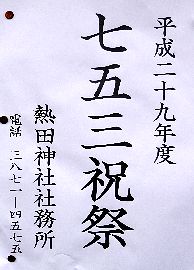 平成二十九年度
七五三祝祭
熱田神社社務所
電話 三八七一―四五七五